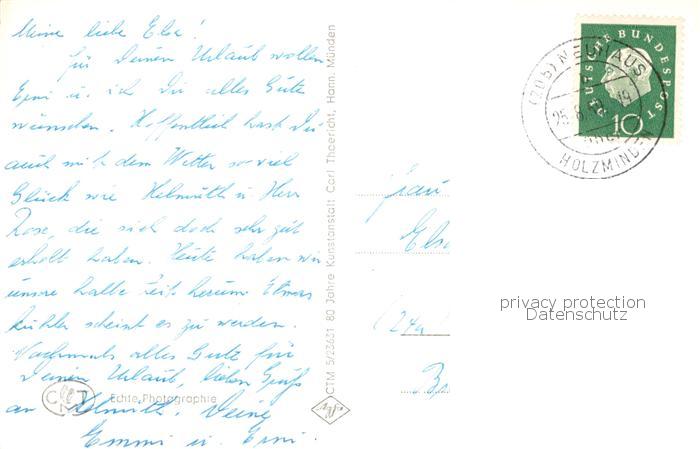 Meine liebe Else!
Für Deinen Urlaub wollen
Erni u. ich Dir alles Gute
wünschen. Hoffentlich hast Du
auch mit dem Wetter so viel
Glück wie Helmuth u. Herr
Rose, die sich doch sehr gut
erholt haben. Heute haben wir
unsre halbe Zeit herum. Etwas
kühler scheint es zu werden.
Nochmals alles Gute für
Deinen Urlaub, lieben Gruß
an Helmuth. Deine
Emmi u. Erni.
Echte Photographie
CTM 5/23631 80 Jahre Kunstanstalt Carl Thoericht, Hann. Münden
DEUTSCHE BUNDESPOST
10
(20b) NEUHAUS
HOLZMINDEN
Frau
Else
privacy protection
Datenschutz